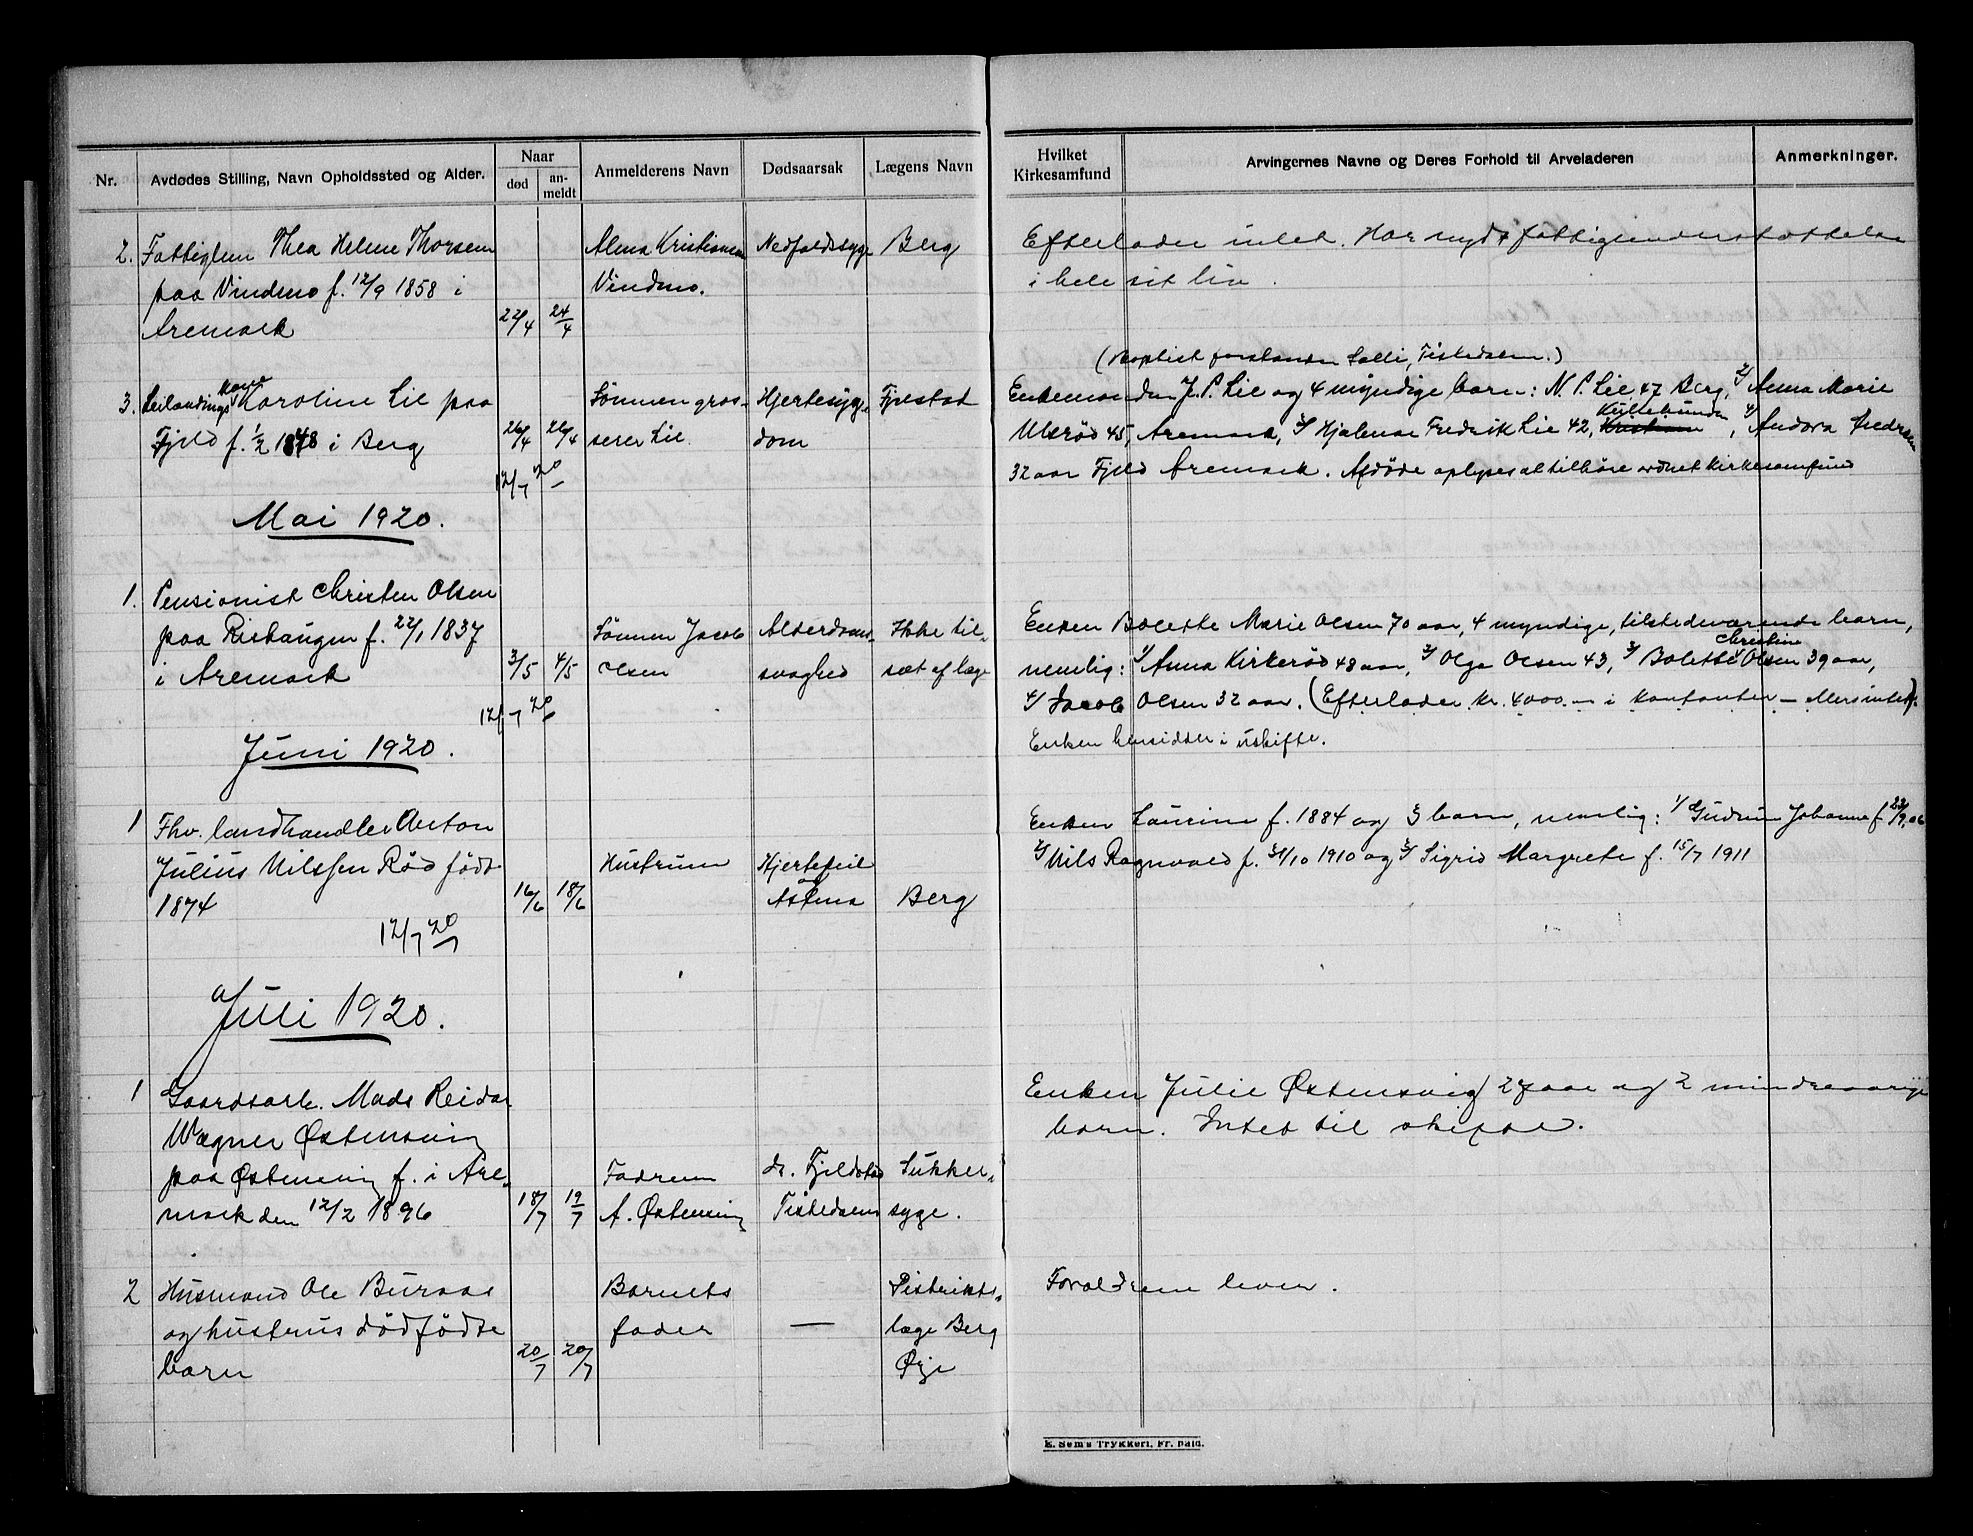 Nr.
Avdødes Stilling, Navn Opholdssted og Alder.
Naar
død
an-
meldt
Anmelderens Navn
Dødsaarsak
Lægens Navn
Hvilket
Kirkesamfund
Arvingernes Navne og Deres Forhold til Arveladeren
Anmerkninger.
2. Fattiglem Thea Helene Thorsen
paa Vindmo f. 12/9 1858 i
Aremark
22/4 24/4
Alma Kristiansen
Vindmo.
Nedfaldssyge
Berg
Efterlader intet. Har nydt fattigunderstøttelse
i hele sit liv.
3. Leilandings Kone Karoline Lie paa
Fjeld f. 1/2 1848 i Berg
26/4 26/4
Sønnen gros-
serer Lie.
Hjertesyg-
dom
Fjelstad
(Baptist forstander Lalli, Tistedalen.)
Enkemanden J. P. Lie og 4 myndige barn: N. P. Lie 47 Berg, 2/ Anna Marie
Ulsrød 45, Aremark, 3/ Hjalmar Fredrik Lie 42, Kullebunden, 4/ Andora Fredriksen
32 aar Fjeld Aremark. Afdøde oplyses at tilhøre ordnet kirkesamfund
12/7 20
Mai 1920.
1. Pensionist Christen Olsen
paa Rishaugen f. 22/1 1837
i Aremark
3/5 4/5
Sønnen Jacob
Olsen
Alderdoms-
svaghed
Ikke til-
set af læge
Enken Bolette Marie Olsen 70 aar, 4 myndige, tilstedeværende barn,
nemlig: 1/ Anna Kirkerød 48 aar, 2/ Olga Olsen 43, 3/ Bolette Christine Olsen 39 aar,
4/ Jacob Olsen 32 aar. (Efterlader kr. 4000.— i kontanter — ellers intet).
Enken hensidder i uskifte.
12/7 20
Juni 1920.
1 Fhv. landhandler Anton
Julius Nilssen Rød født
1874
16/6 18/6
Hustruen
Hjertefeil
og
Astma
Berg
Enken Laurine f. 1884 og 3 barn, nemlig: 1/ Gudrun Johanne f. 23/9 06
2/ Nils Ragnvald f. 31/10 1910 og 3/ Sigrid Margrete f. 15/7 1911
12/7 20
Juli 1920.
1 Gaardsarb. Mads Reidar
Wegner Østensvig
paa Østensvig f. i Are-
mark den 12/2 1896
18/7 19/7
Faderen
A. Østensvig
dr. Fjeldstad
Tistedalen
Sukker-
syge.
Enken Julie Østensvig 27 aar og 2 mindreaarige
barn. Intet til skifte.
2 Husmand Ole Buraas
og hustrus dødfødte
barn
20/7 20/7
Barnets
fader
—
Distrikts-
læge Berg
Ørje
Forældrene lever.
E. Sem's Trykkeri, Fr. hald.